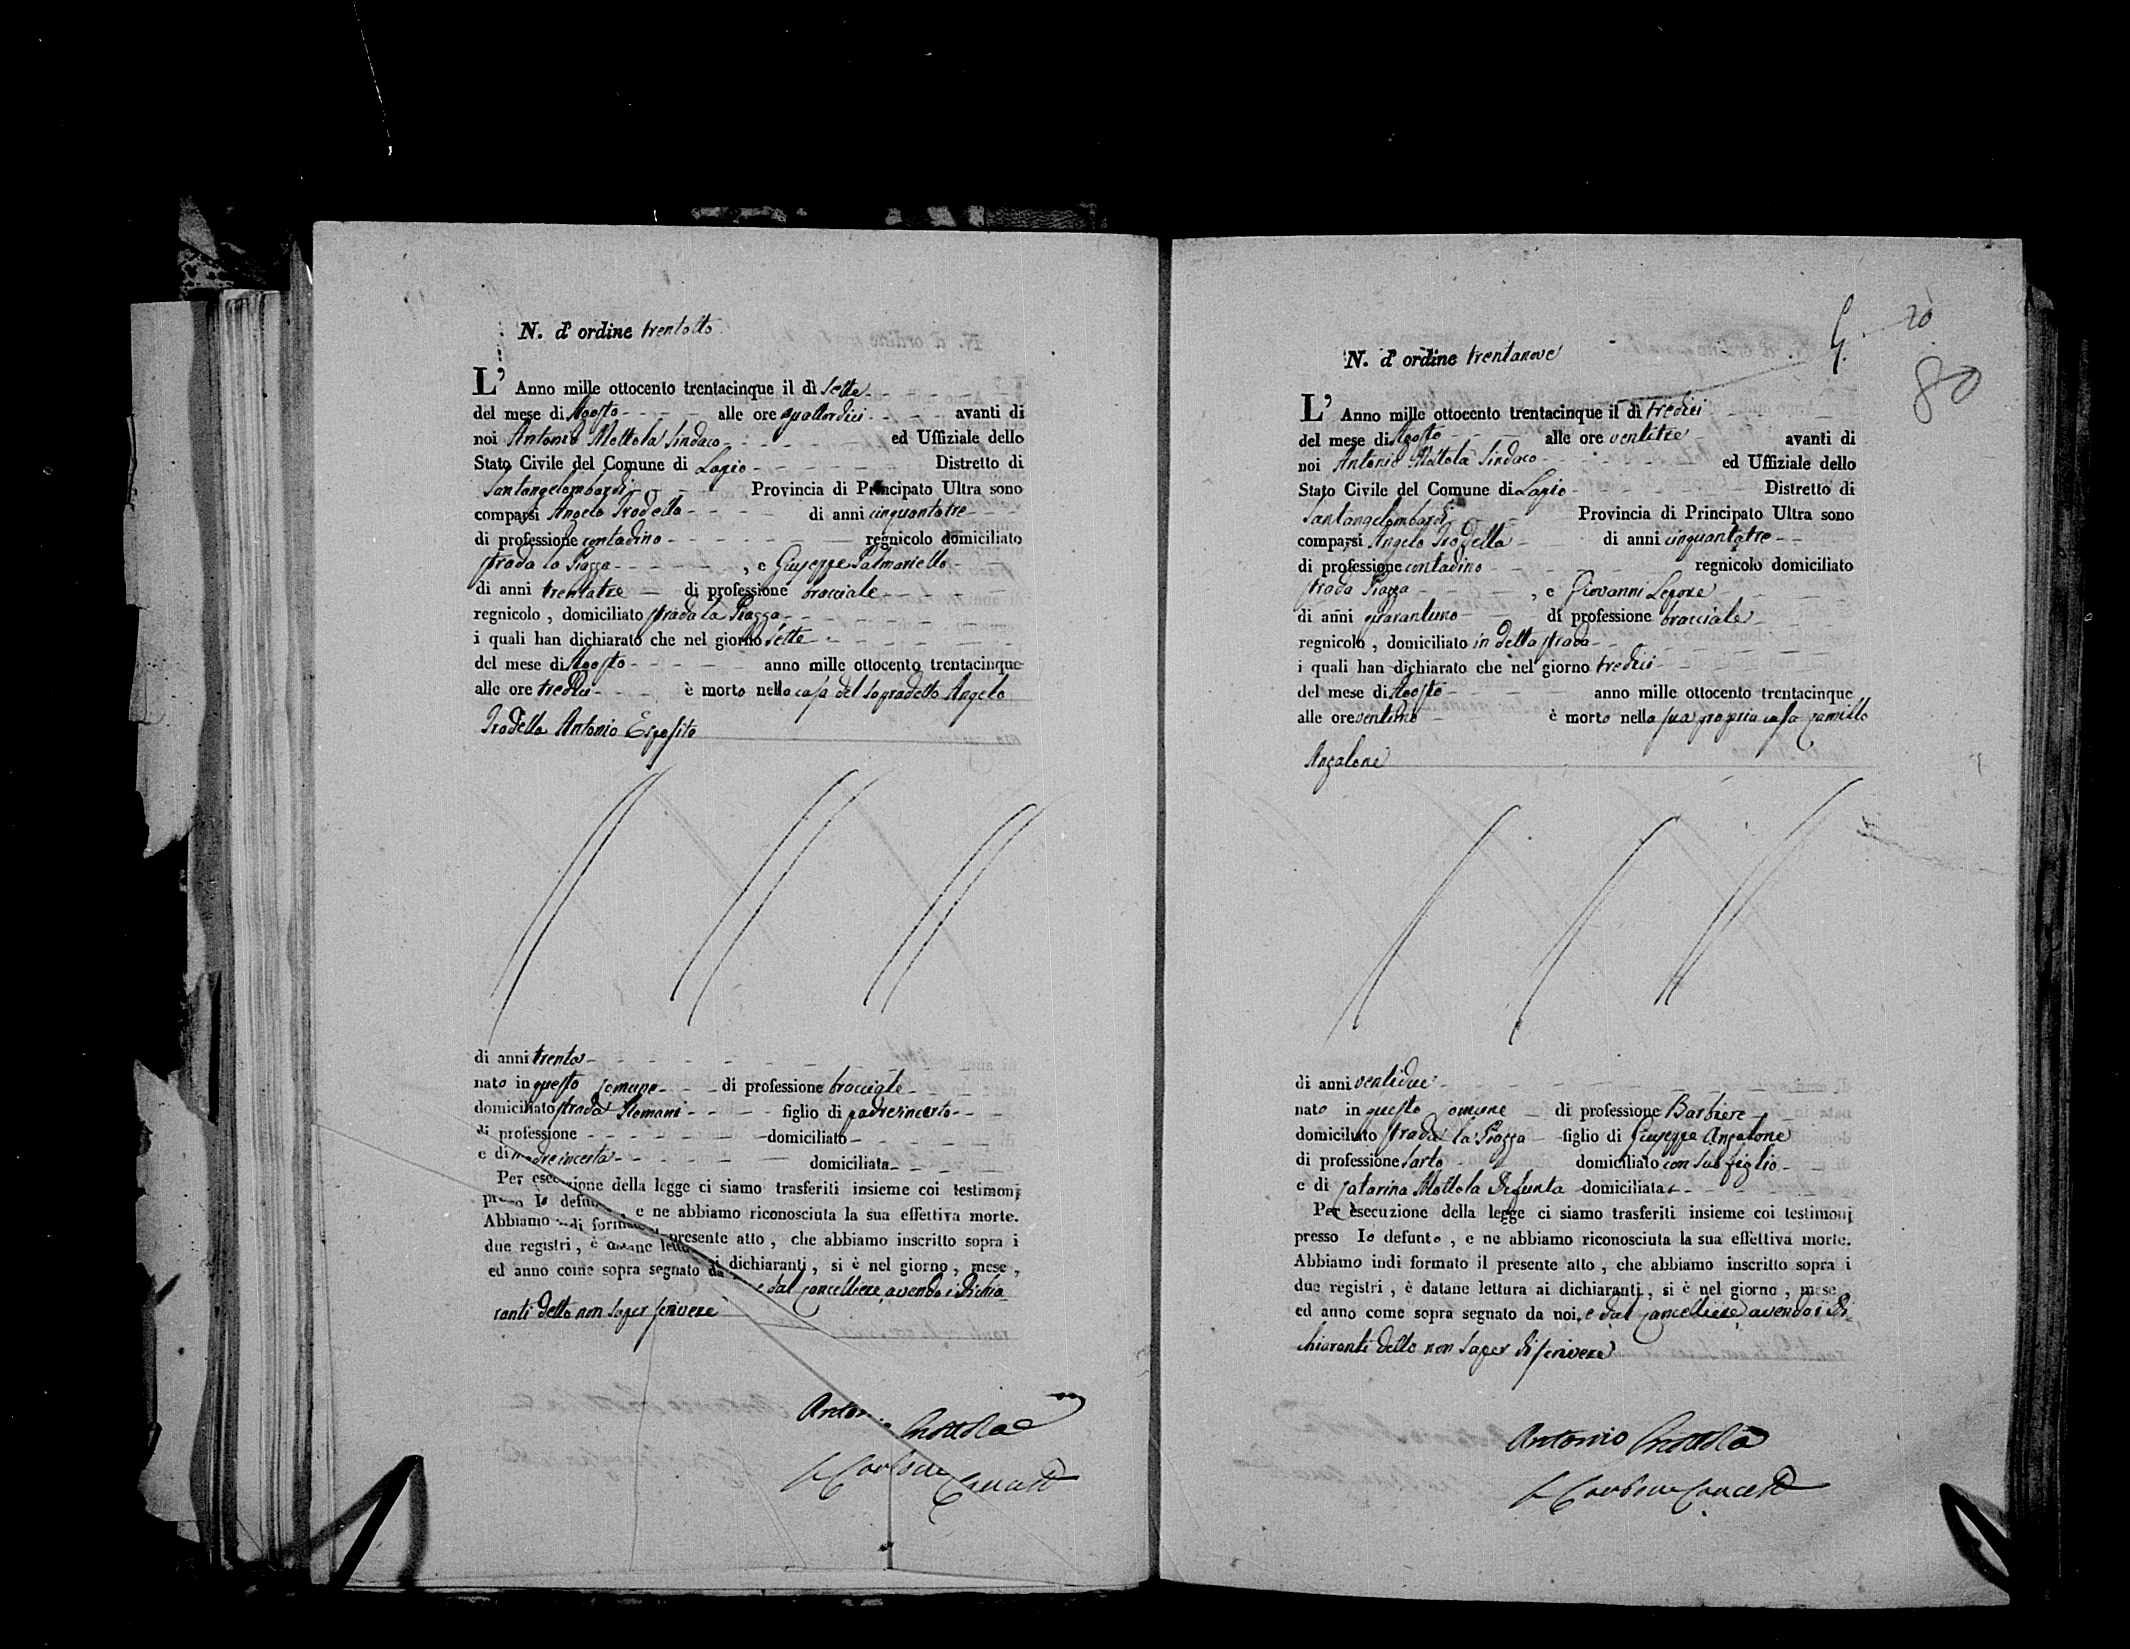 N. d' ordine trentotto
L' Anno mille ottocento trentacinque il dì sette
del mese di Agosto alle ore quattordici avanti di
noi Antonio Mottola Sindaco ed Uffiziale dello
Stato Civile del Comune di Lapio Distretto di
Santangelombardi Provincia di Principato Ultra sono
comparsi Angelo Trodella di anni cinquantatre
di professione contadino regnicolo domiciliato
strada la Piazza , e Giuseppe Palmariello
di anni trentatre di professione bracciale
regnicolo , domiciliato strada la Piazza
i quali han dichiarato che nel giorno sette
del mese di Agosto anno mille ottocento trentacinque
alle ore tredici è morto nella casa del sopradetto Angelo
Trodella Antonio Esposito
di anni trenta
nato in questo Comune di professione bracciale
domiciliato strada figlio di padre incerto
di professione domiciliato
e di madre incerta domiciliata
Per esecuzione della legge ci siamo trasferiti insieme coi testimonj
presso lo defunto , e ne abbiamo riconosciuta la sua effettiva morte.
Abbiamo indi formato il presente atto , che abbiamo inscritto sopra i
due registri , è datane lettura ai dichiaranti , si è nel giorno , mese ,
ed anno come sopra segnato da e dal Cancelliere avendo i dichia
ranti detto non saper scrivere
Antonio Mottola
N. d' ordine trentanove
20
80
L' Anno mille ottocento trentacinque il dì tredici
del mese di Agosto alle ore ventitre avanti di
noi Antonio Mottola Sindaco ed Uffiziale dello
Stato Civile del Comune di Lapio Distretto di
Santangelombardi Provincia di Principato Ultra sono
comparsi Angelo Trodella di anni cinquantatre
di professione contadino regnicolo domiciliato
strada Piazza , e Giovanni Lepore
di anni quarantuno di professione bracciale
regnicolo , domiciliato in detta strada
i quali han dichiarato che nel giorno tredici
del mese di Agosto anno mille ottocento trentacinque
alle ore ventuno è morto nella sua propria casa Camillo
Anzalone
di anni ventidue
nato in questo Comune di professione Barbiere
domiciliato strada la Piazza figlio di Giuseppe Anzalone
di professione sarto domiciliato con suo figlio
e di Catarina Mottola defunta domiciliata
Per esecuzione della legge ci siamo trasferiti insieme coi testimonj
presso lo defunto , e ne abbiamo riconosciuta la sua effettiva morte.
Abbiamo indi formato il presente atto , che abbiamo inscritto sopra i
due registri , è datane lettura ai dichiaranti , si è nel giorno , mese
ed anno come sopra segnato da noi, e dal Cancelliere avendo i di
chiaranti detto non saper di scrivere
Antonio Mottola